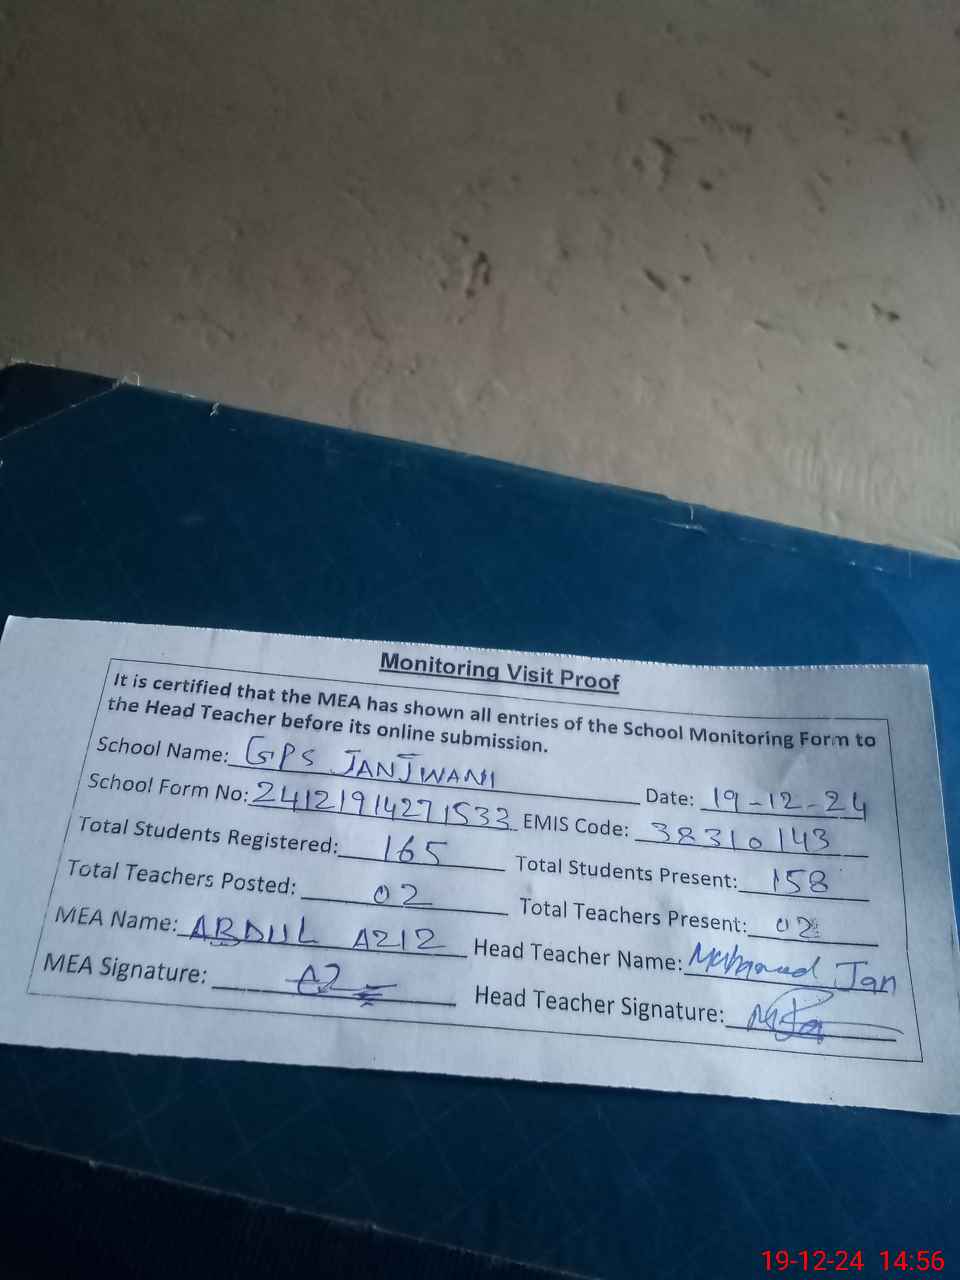 Monitoring Visit Proof
It is certified that the MEA has shown all entries of the School Monitoring Form to
the Head Teacher before its online submission.
School Name: GPS JANJWANI Date: 19-12-24
School Form No: 24121914271533 EMIS Code: 38310143
Total Students Registered: 165 Total Students Present: 158
Total Teachers Posted: 02 Total Teachers Present: 02
MEA Name: ABDUL AZIZ Head Teacher Name: Mohamad Jan
MEA Signature: AZ Head Teacher Signature:
19-12-24 14:56